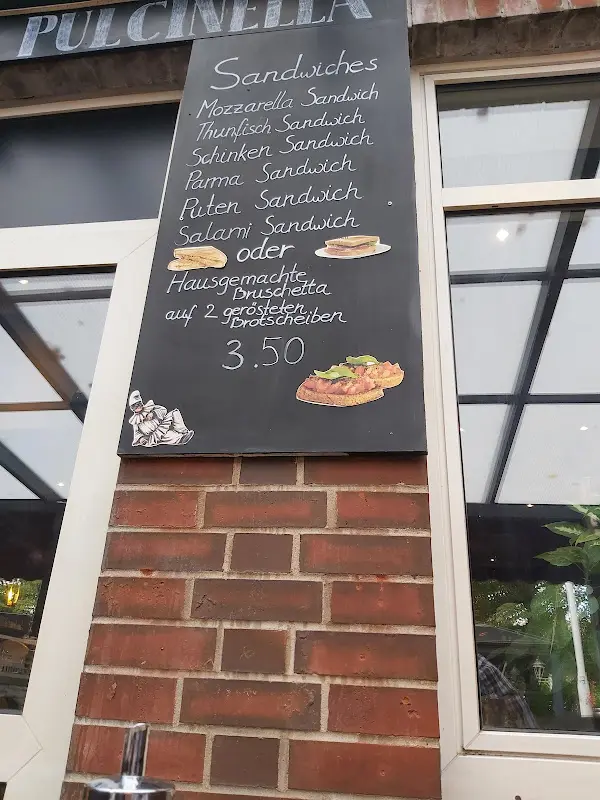 PULCINELLA
Sandwiches
Mozzarella Sandwich
Thunfisch Sandwich
Schinken Sandwich
Parma Sandwich
Puten Sandwich
Salami Sandwich
oder
Hausgemachte
Bruschetta
auf 2 gerösteten
Brotscheiben
3.50